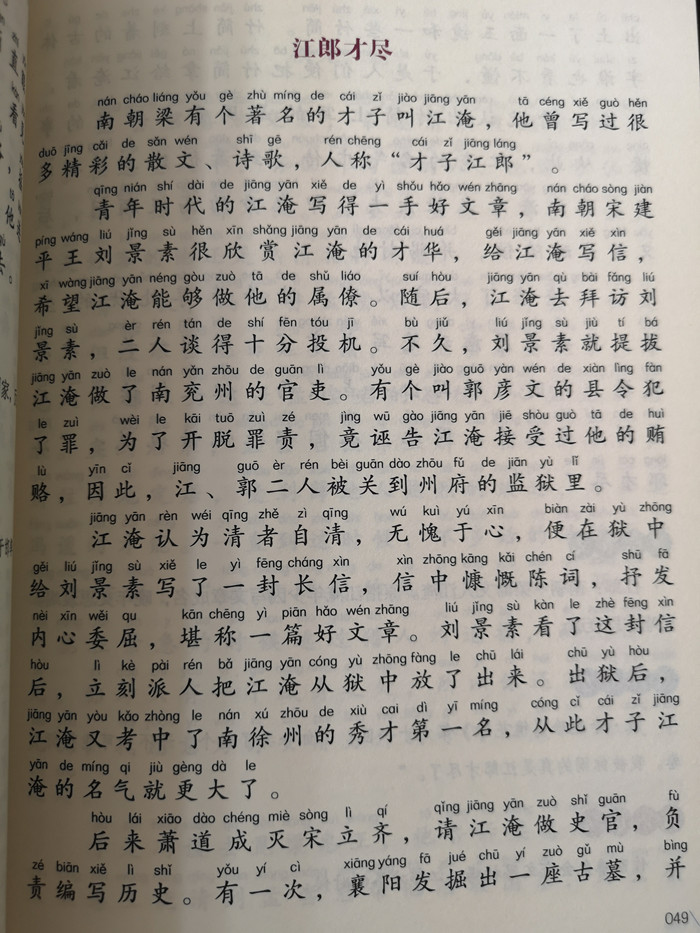 江郎才尽
nán cháo liáng yǒu gè zhù míng de cái zǐ jiào jiāng yān tā céng xiě guò hěn
南朝梁有个著名的才子叫江淹，他曾写过很
duō jīng cǎi de sǎn wén shī gē rén chēng cái zǐ jiāng láng
多精彩的散文、诗歌，人称“才子江郎”。
qīng nián shí dài de jiāng yān xiě de yì shǒu hǎo wén zhāng nán cháo sòng jiàn
青年时代的江淹写得一手好文章，南朝宋建
píng wáng liú jǐng sù hěn xīn shǎng jiāng yān de cái huá gěi jiāng yān xiě xìn
平王刘景素很欣赏江淹的才华，给江淹写信，
xī wàng jiāng yān néng gòu zuò tā de shǔ liáo suí hòu jiāng yān qù bài fǎng liú
希望江淹能够做他的属僚。随后，江淹去拜访刘
jǐng sù èr rén tán de shí fēn tóu jī bù jiǔ liú jǐng sù jiù tí bá
景素，二人谈得十分投机。不久，刘景素就提拔
jiāng yān zuò le nán yǎn zhōu de guān lì yǒu gè jiào guō yàn wén de xiàn lìng fàn
江淹做了南兖州的官吏。有个叫郭彦文的县令犯
le zuì wèi le kāi tuō zuì zé jìng wū gào jiāng yān jiē shòu guò tā de huì
了罪，为了开脱罪责，竟诬告江淹接受过他的贿
lù yīn cǐ jiāng guō èr rén bèi guān dào zhōu fǔ de jiān yù lǐ
赂，因此，江、郭二人被关到州府的监狱里。
jiāng yān rèn wéi qīng zhě zì qīng wú kuì yú xīn biàn zài yù zhōng
江淹认为清者自清，无愧于心，便在狱中
gěi liú jǐng sù xiě le yì fēng cháng xìn xìn zhōng kāng kǎi chén cí shū fā
给刘景素写了一封长信，信中慷慨陈词，抒发
nèi xīn wěi qu kān chēng yì piān hǎo wén zhāng liú jǐng sù kàn le zhè fēng xìn
内心委屈，堪称一篇好文章。刘景素看了这封信
hòu lì kè pài rén bǎ jiāng yān cóng yù zhōng fàng le chū lái chū yù hòu
后，立刻派人把江淹从狱中放了出来。出狱后，
jiāng yān yòu kǎo zhòng le nán xú zhōu de xiù cai dì yī míng cóng cǐ cái zǐ jiāng
江淹又考中了南徐州的秀才第一名，从此才子江
yān de míng qi jiù gèng dà le
淹的名气就更大了。
hòu lái xiāo dào chéng miè sòng lì qí qǐng jiāng yān zuò shǐ guān fù
后来萧道成灭宋立齐，请江淹做史官，负
zé biān xiě lì shǐ yǒu yí cì xiāng yáng fā jué chū yí zuò gǔ mù bìng
责编写历史。有一次，襄阳发掘出一座古墓，并
049